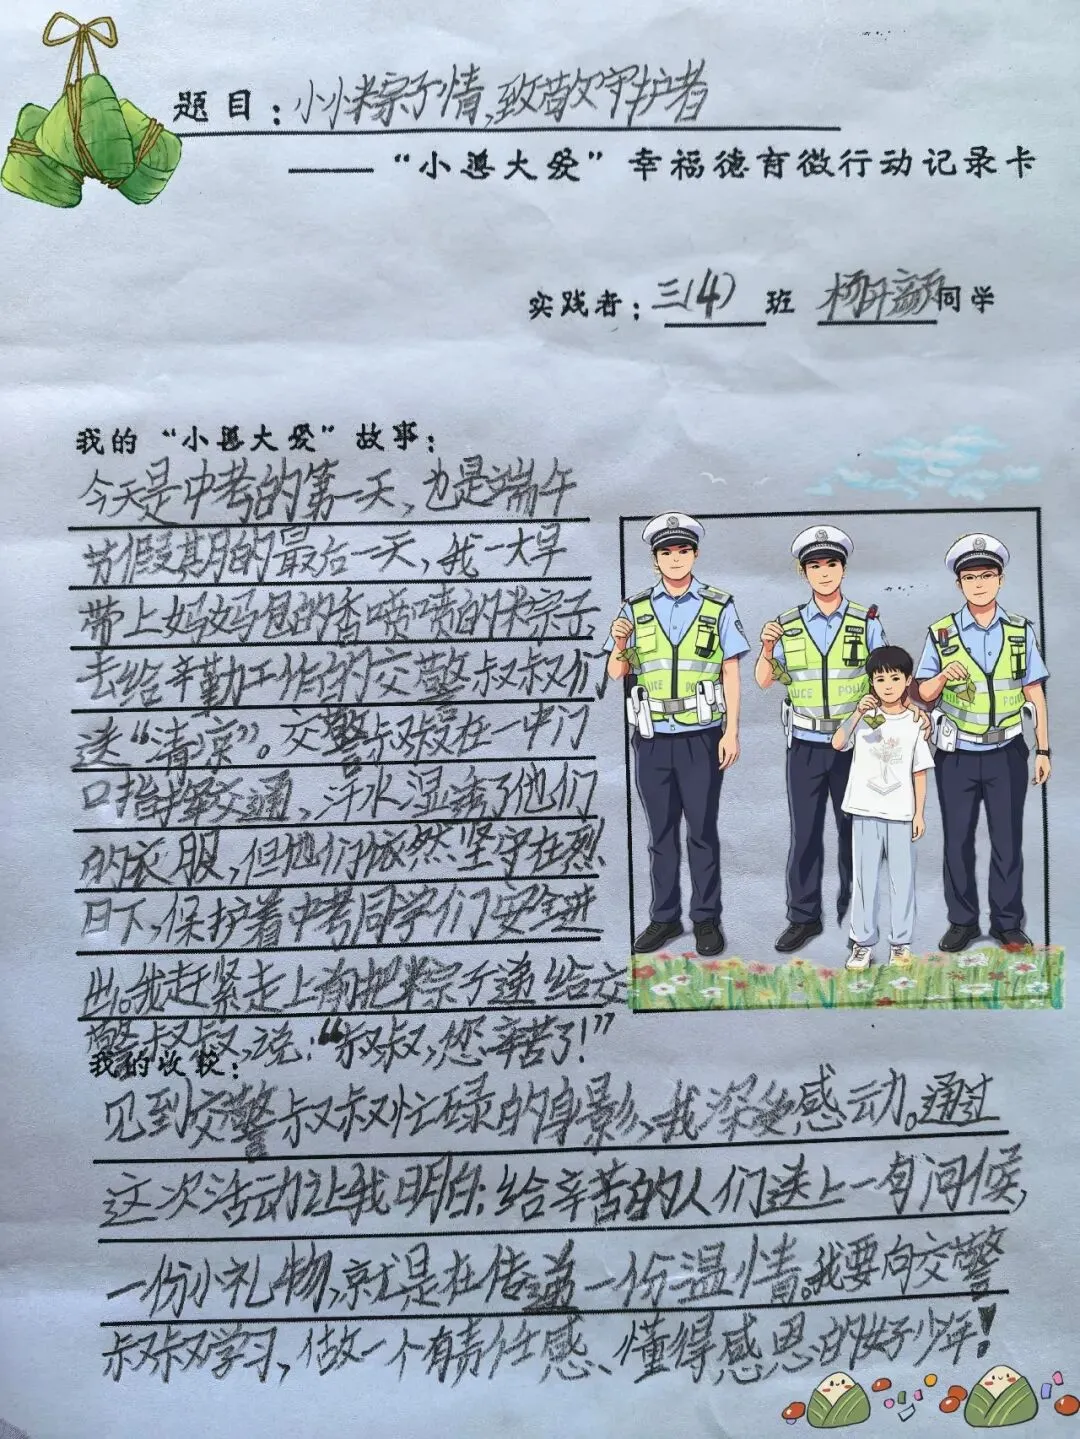 题目：小小粽子情，致敬守护者
——“小善大爱”幸福德育微行动记录卡
实践者：三(4)班 杨 同学
我的“小善大爱”故事：
今天是中考的第一天，也是端午
节假期的最后一天，我一大早
带上妈妈包的香喷喷的粽子
去给辛勤工作的交警叔叔们
送“清凉”。交警叔叔在一中门
口指挥交通，汗水湿透了他们
的衣服，但他们依然坚守在烈
日下，保护着中考同学们安全进
出。我赶紧走上前把粽子递给交
警叔叔，说：“叔叔，您辛苦了！”
我的收获：
见到交警叔叔忙碌的身影，我深受感动。通过
这次活动让我明白：给辛苦的人们送上一句问候，
一份小礼物，就是在传递一份温情。我要向交警
叔叔学习，做一个有责任感、懂得感恩的好少年！